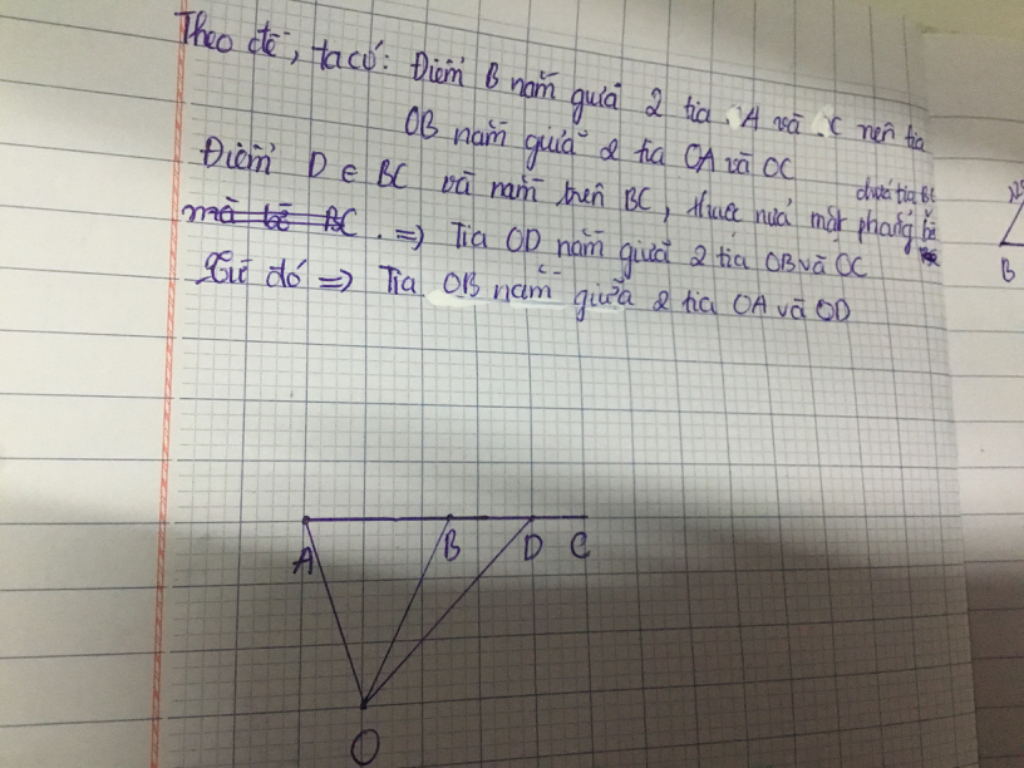 Theo đề, ta có: Điểm B nằm giữa 2 tia A và C nên tia
OB nằm giữa 2 tia OA và OC
Điểm D ∈ BC và nằm trên BC, thuộc nửa mặt phẳng bờ
chứa tia BC
mà bờ BC. => Tia OD nằm giữa 2 tia OB và OC
Từ đó => Tia OB nằm giữa 2 tia OA và OD
A B D C
O
B